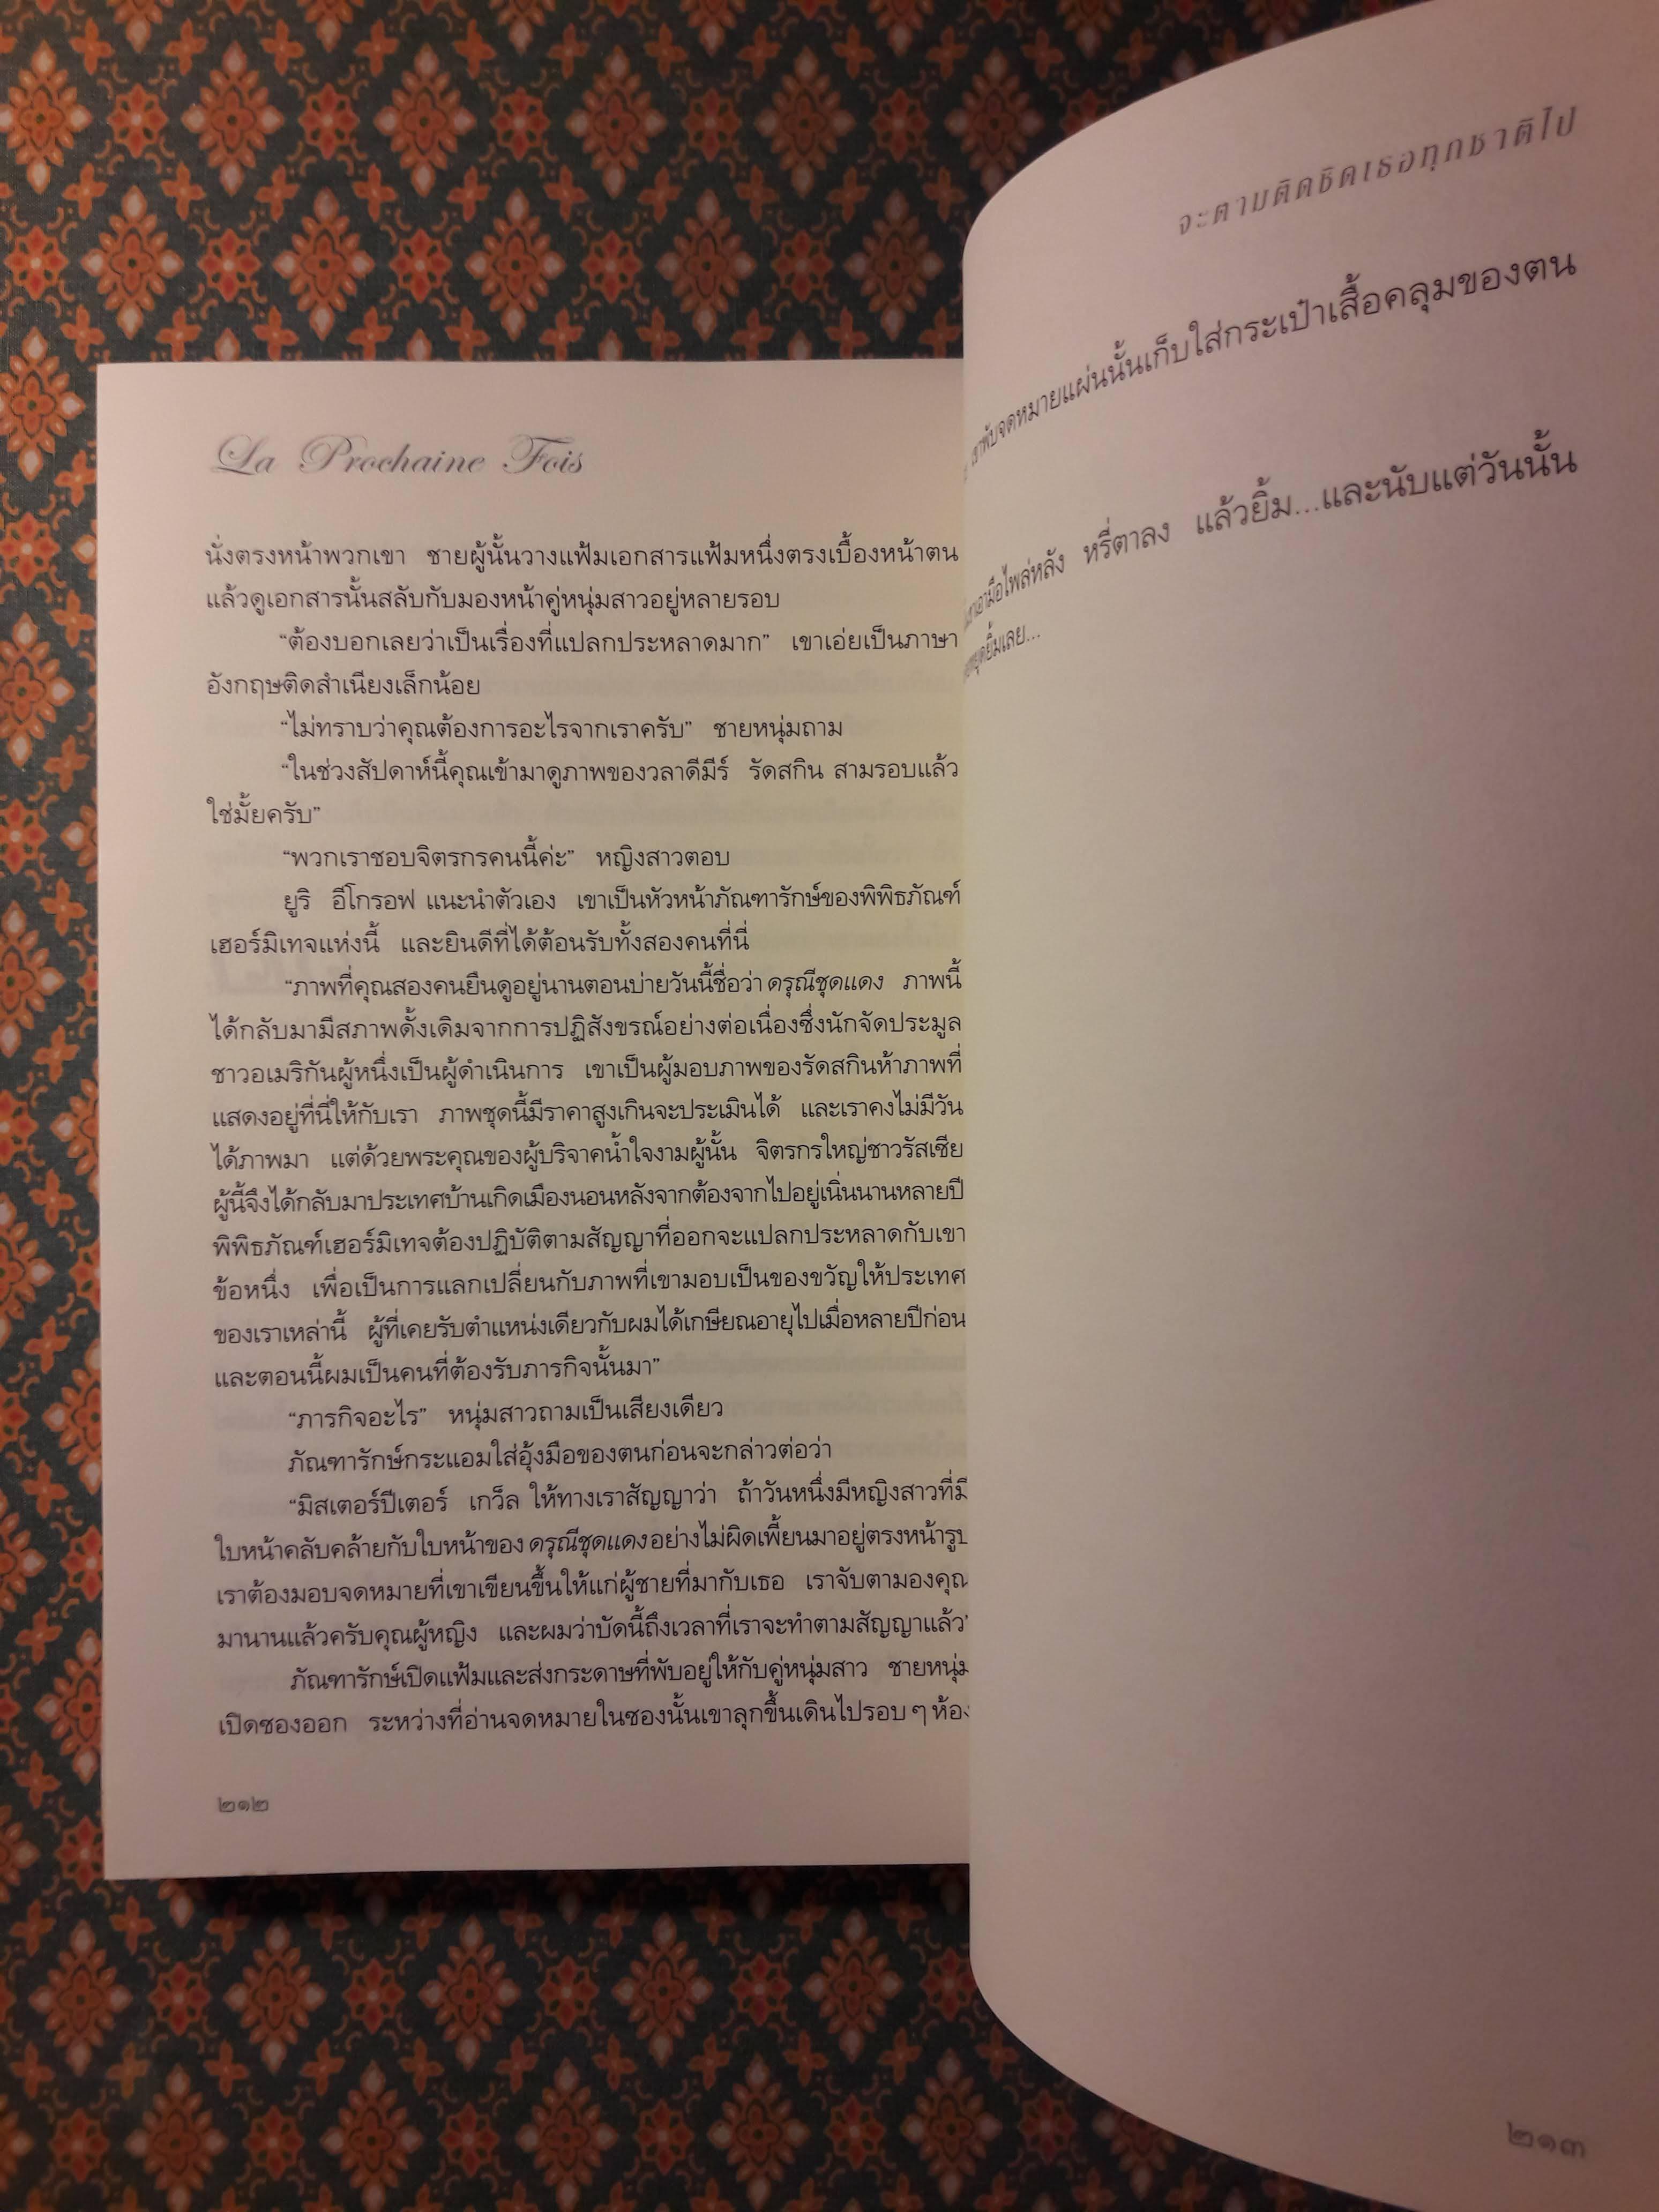 La Prochaine Fois
นั่งตรงหน้าพวกเขา ชายผู้นั้นวางแฟ้มเอกสารแฟ้มหนึ่งตรงเบื้องหน้าตน
แล้วดูเอกสารนั้นสลับกับมองหน้าคู่หนุ่มสาวอยู่หลายรอบ
“ต้องบอกเลยว่าเป็นเรื่องที่แปลกประหลาดมาก” เขาเอ่ยเป็นภาษา
อังกฤษติดสำเนียงเล็กน้อย
“ไม่ทราบว่าคุณต้องการอะไรจากเราครับ” ชายหนุ่มถาม
“ในช่วงสัปดาห์นี้คุณเข้ามาดูภาพของวลาดีมีร์ รัดสกิน สามรอบแล้ว
ใช่มั้ยครับ”
“พวกเราชอบจิตรกรคนนี้ค่ะ” หญิงสาวตอบ
ยูริ อีโกรอฟ แนะนำตัวเอง เขาเป็นหัวหน้าภัณฑารักษ์ของพิพิธภัณฑ์
เฮอร์มิเทจแห่งนี้ และยินดีที่ได้ต้อนรับทั้งสองคนที่นี่
“ภาพที่คุณสองคนยืนดูอยู่นานตอนบ่ายวันนี้ชื่อว่า ดรุณีชุดแดง ภาพนี้
ได้กลับมามีสภาพดั้งเดิมจากการปฏิสังขรณ์อย่างต่อเนื่องซึ่งนักจัดประมูล
ชาวอเมริกันผู้หนึ่งเป็นผู้ดำเนินการ เขาเป็นผู้มอบภาพของรัดสกินห้าภาพที่
แสดงอยู่ที่นี่ให้กับเรา ภาพชุดนี้มีราคาสูงเกินจะประเมินได้ และเราคงไม่มีวัน
ได้ภาพมา แต่ด้วยพระคุณของผู้บริจาคน้ำใจงามผู้นั้น จิตรกรใหญ่ชาวรัสเซีย
ผู้นี้จึงได้กลับมาประเทศบ้านเกิดเมืองนอนหลังจากต้องจากไปอยู่เนิ่นนานหลายปี
พิพิธภัณฑ์เฮอร์มิเทจต้องปฏิบัติตามสัญญาที่ออกจะแปลกประหลาดกับเขา
ข้อหนึ่ง เพื่อเป็นการแลกเปลี่ยนกับภาพที่เขามอบเป็นของขวัญให้ประเทศ
ของเราเหล่านี้ ผู้ที่เคยรับตำแหน่งเดียวกับผมได้เกษียณอายุไปเมื่อหลายปีก่อน
และตอนนี้ผมเป็นคนที่ต้องรับภารกิจนั้นมา”
“ภารกิจอะไร” หนุ่มสาวถามเป็นเสียงเดียว
ภัณฑารักษ์กระแอมใส่อุ้งมือของตนก่อนจะกล่าวต่อว่า
“มิสเตอร์ปีเตอร์ เกว็ล ให้ทางเราสัญญาว่า ถ้าวันหนึ่งมีหญิงสาวที่มี
ใบหน้าคลับคล้ายกับใบหน้าของ ดรุณีชุดแดง อย่างไม่ผิดเพี้ยนมาอยู่ตรงหน้ารูป
เราต้องมอบจดหมายที่เขาเขียนขึ้นให้แก่ผู้ชายที่มากับเธอ เราจับตามองคุณ
มานานแล้วครับคุณผู้หญิง และผมว่าบัดนี้ถึงเวลาที่เราจะทำตามสัญญาแล้ว”
ภัณฑารักษ์เปิดแฟ้มและส่งกระดาษที่พับอยู่ให้กับคู่หนุ่มสาว ชายหนุ่ม
เปิดซองออก ระหว่างที่อ่านจดหมายในซองนั้นเขาลุกขึ้นเดินไปรอบ ๆ ห้อง
๒๑๒
จะตามติดชิดเธอทุกชาติไป
เขาพับจดหมายแผ่นนั้นเก็บใส่กระเป๋าเสื้อคลุมของตน
มือไพล่หลัง หรี่ตาลง แล้วยิ้ม...และนับแต่วันนั้น
หยุดยิ้มเลย...
๒๑๓